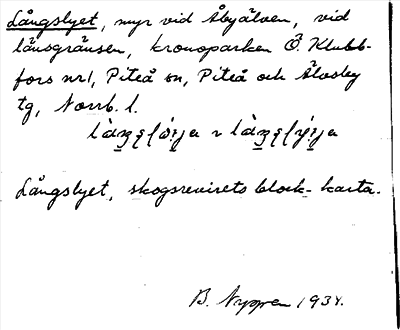 Långslyet, myr vid Åbyälven, vid
länsgränsen, kronoparken Ö. Klubb-
fors nr 1, Piteå sn, Piteå och Älvsby
tg, Norrb. l.
Långslyet, skogsrevirets block-karta.
B. Nyggren 1934.